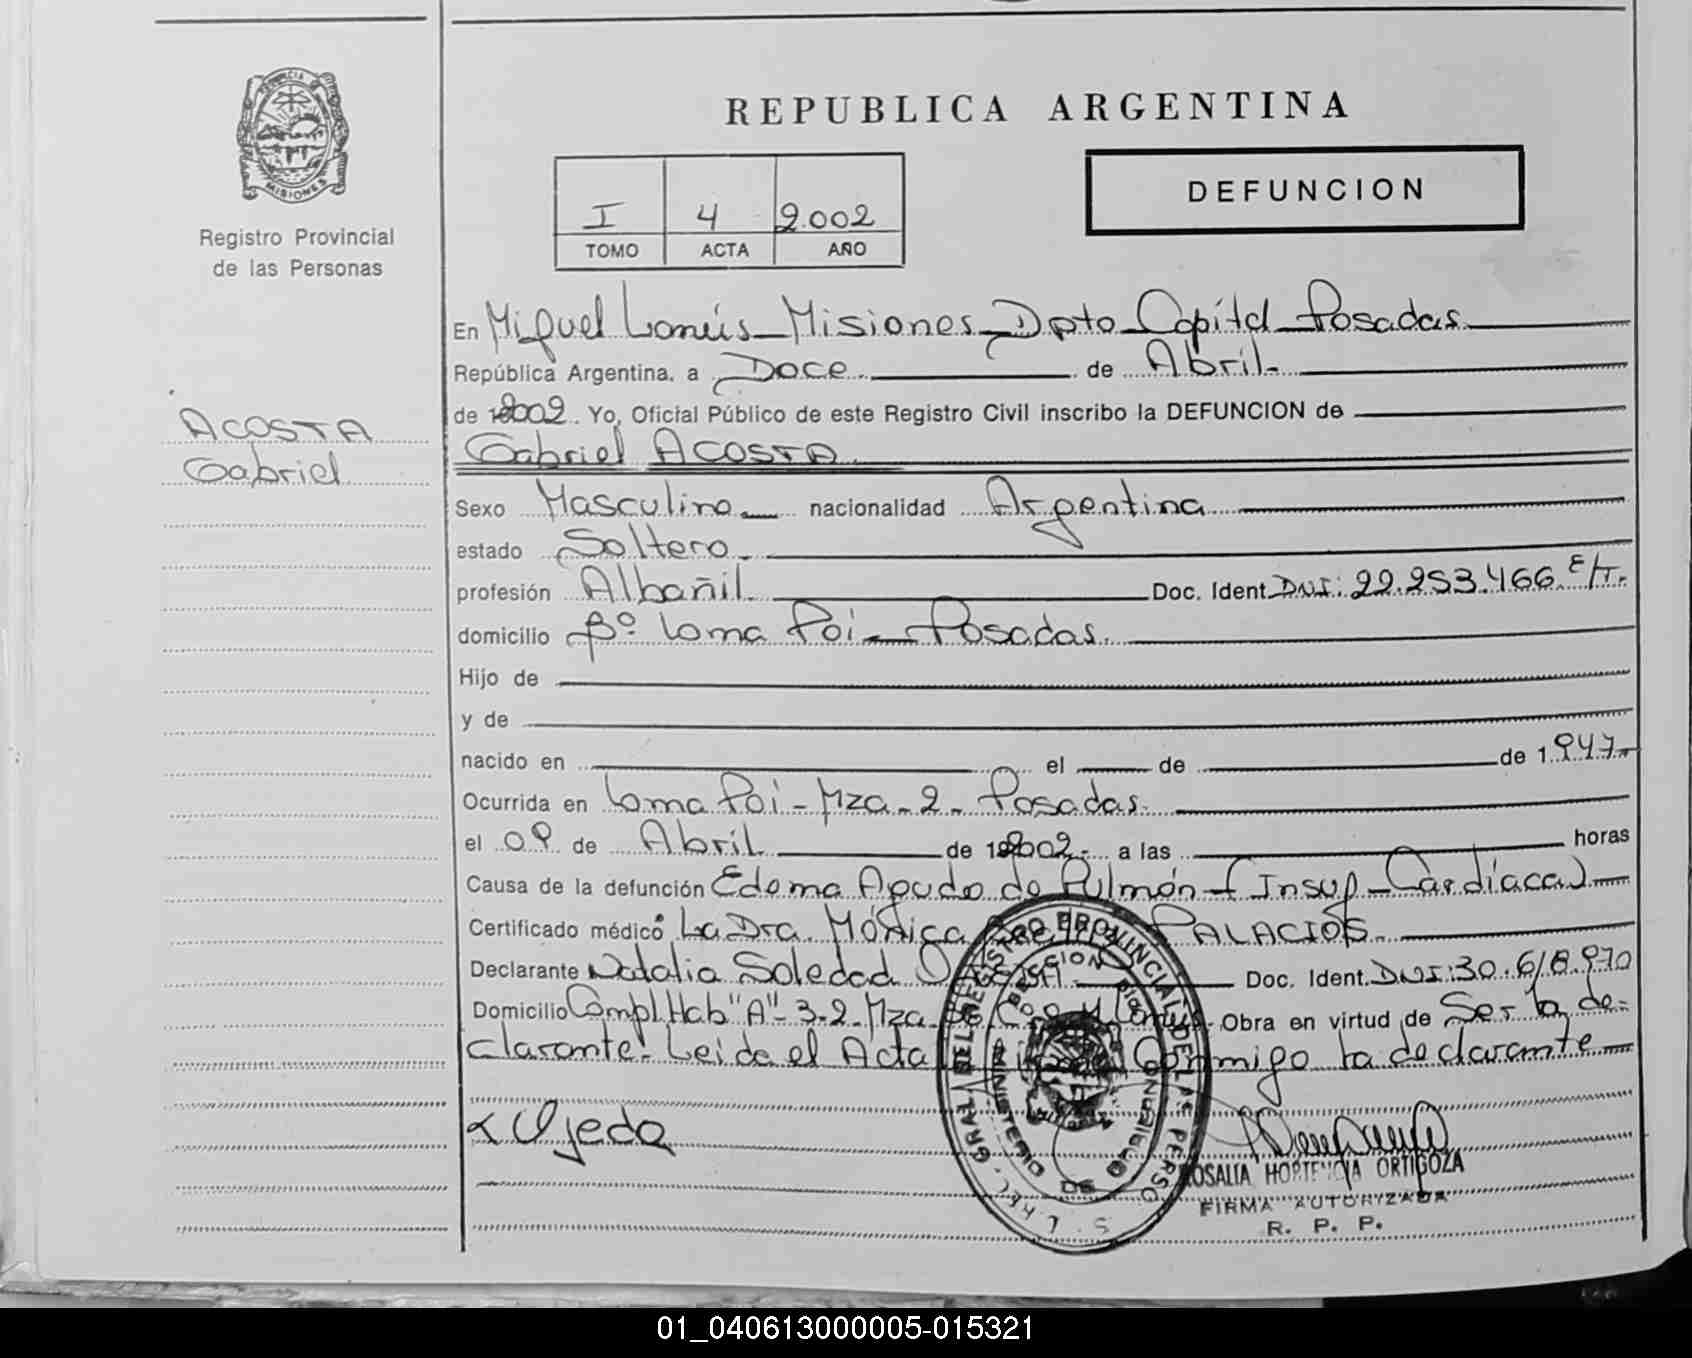 REPUBLICA ARGENTINA
PROVINCIA DE
MISIONES
Registro Provincial
de las Personas
I 4 2.002
TOMO ACTA AÑO
DEFUNCION
En Miguel Lanús - Misiones - Dpto Capital Posadas
República Argentina, a Doce de Abril
de 2002. Yo, Oficial Público de este Registro Civil inscribo la DEFUNCION de
ACOSTA
Gabriel
Gabriel ACOSTA
Sexo Masculino nacionalidad Argentina
estado Soltero
profesión Albañil Doc. Ident. DNI: 22.253.466 E/T.
domicilio Bº Loma Poi - Posadas
Hijo de
y de
nacido en el de de 1.947
Ocurrida en Loma Poi - Mza - 2 - Posadas
el 09 de Abril de 2002 a las horas
Causa de la defunción Edema Agudo de Pulmón - (Insuf - Cardíaca)
Certificado médico La Dra. Mónica PALACIOS
Declarante Natalia Soledad Doc. Ident. DNI: 30.618.970
Domicilio Compl. Hab "A" - 3-2 - Mza Obra en virtud de Ser la de-
clarante - Leida el Acta Conmigo la declarante
Ojeda
REGISTRO PROVINCIAL DE LAS PERSONAS
MINISTERIO DE GOBIERNO
ROSALIA HORTENCIA ORTIGOZA
FIRMA AUTORIZADA
R. P. P.
01_040613000005-015321